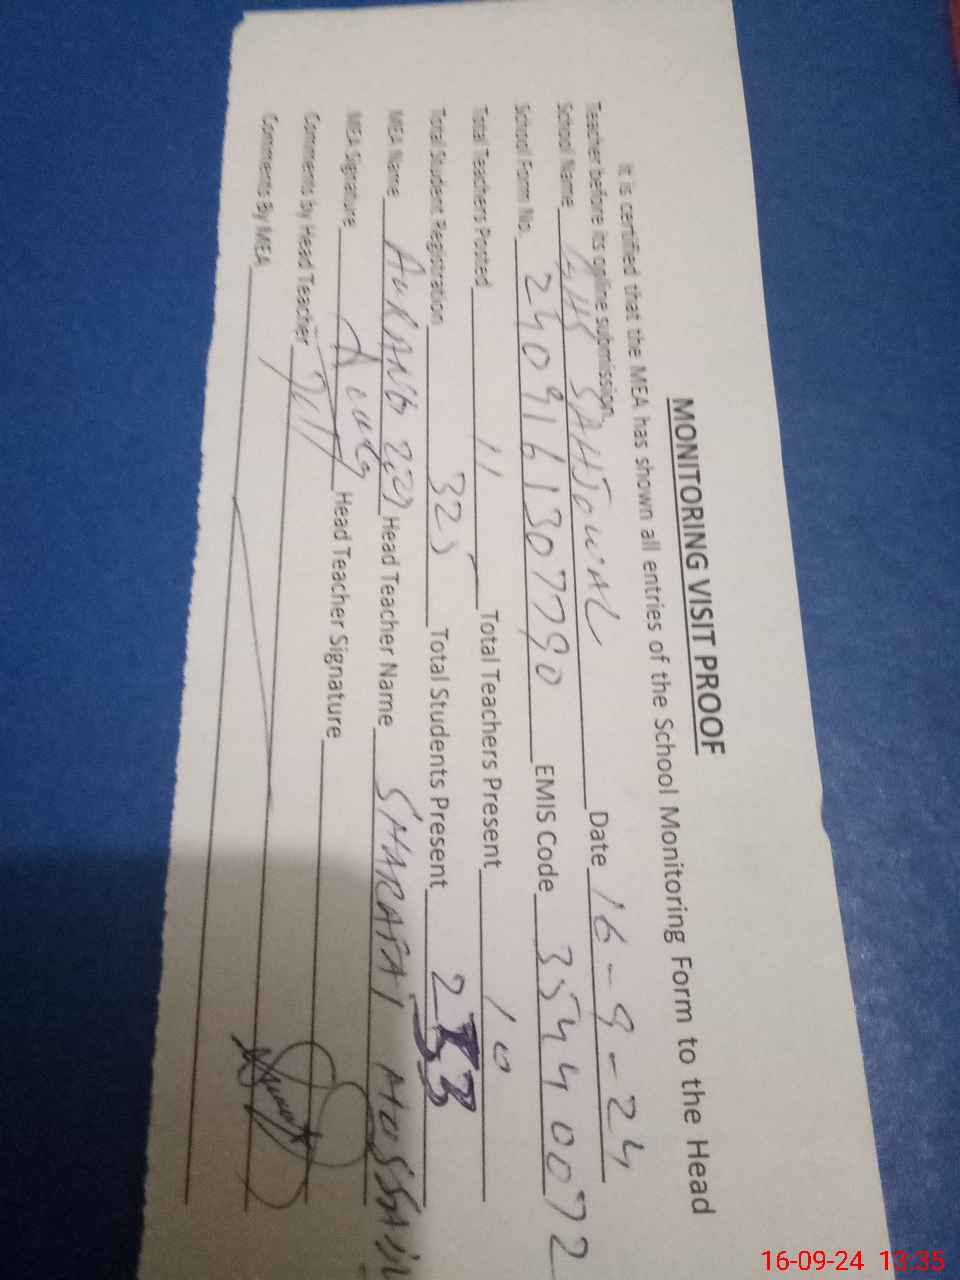 MONITORING VISIT PROOF
It is certified that the MEA has shown all entries of the School Monitoring Form to the Head
Teacher before its online submission.
School Name SAHJOWAL Date 16-9-24
School Form No. 2409161307790 EMIS Code 35440072
Total Teachers Posted 11 Total Teachers Present 10
Total Student Registration 325 Total Students Present 253
MEA Name AURANG Head Teacher Name SHARAFAT HUSSAIN
MEA Signature Head Teacher Signature
Comments by Head Teacher
Comments By MEA
16-09-24 13:35